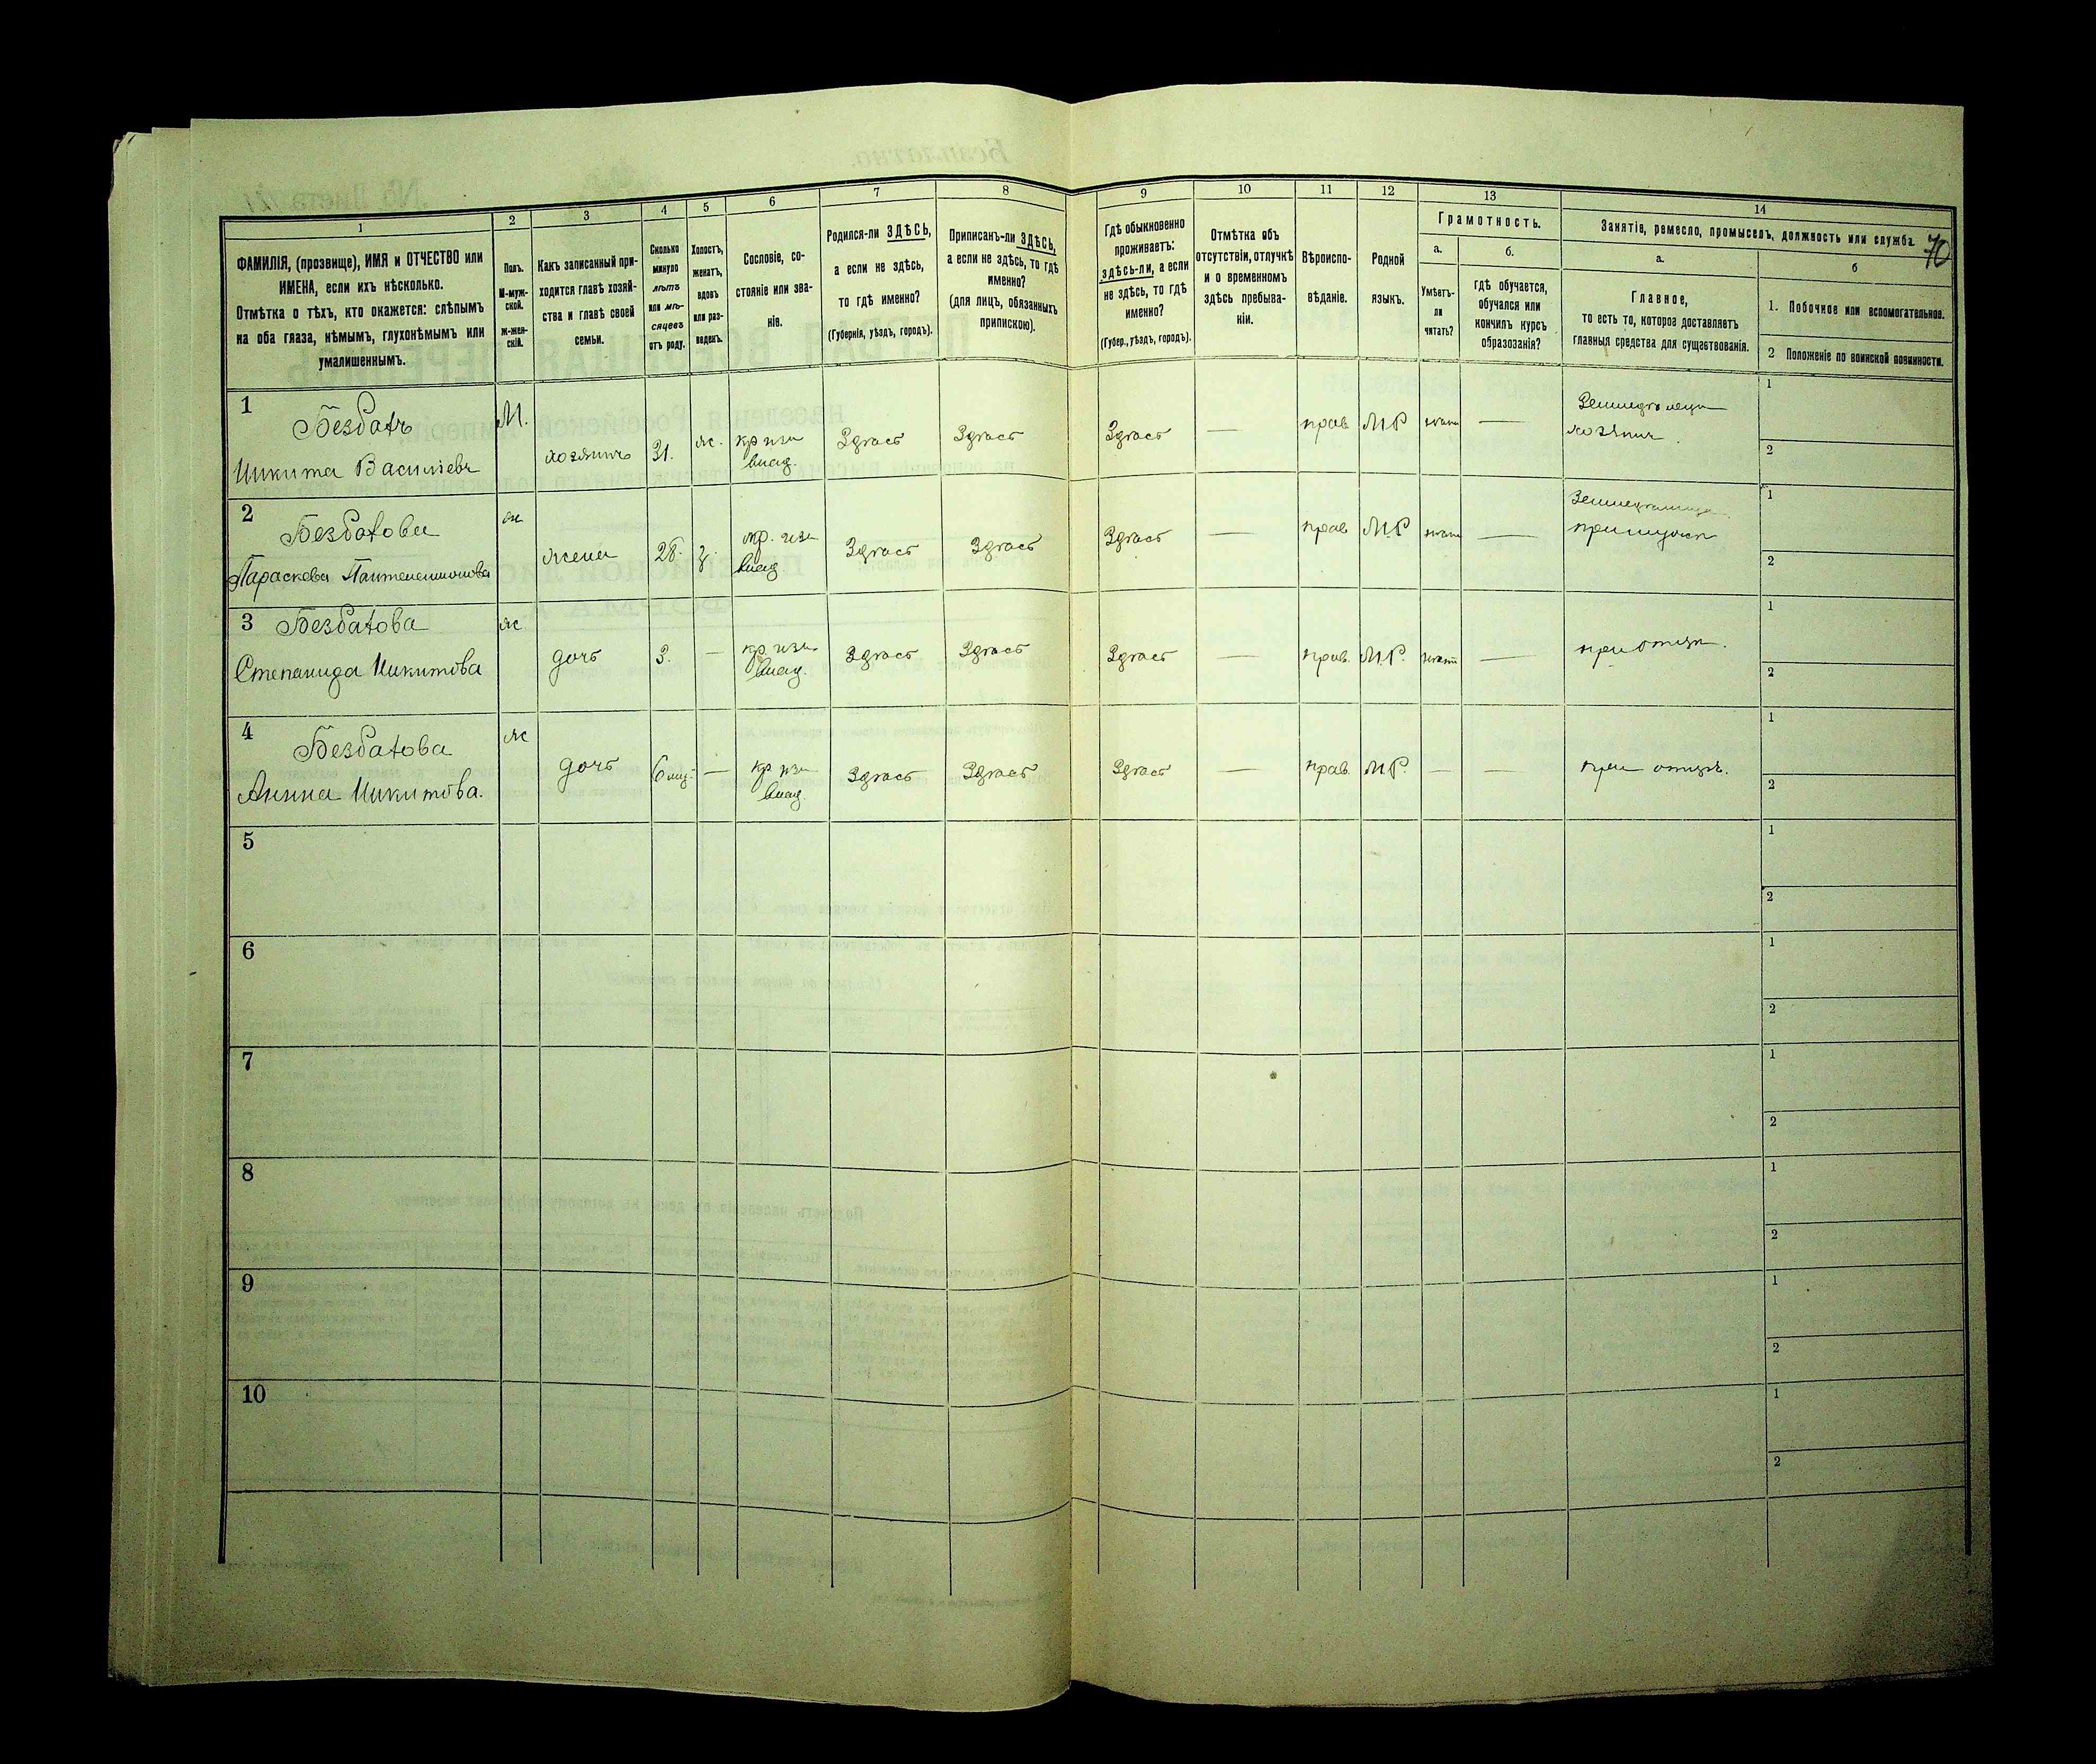 70
1 2 3 4 5 6 7 8 9 10 11 12 13 14
ФАМИЛІЯ, (прозвище), ИМЯ и ОТЧЕСТВО или
ИМЕНА, если ихъ нѣсколько.
Отмѣтка о тѣхъ, кто окажется: слѣпымъ
на оба глаза, нѣмымъ, глухонѣмымъ или
умалишеннымъ.
Полъ.
М-муж-
ской.
Ж-жен-
скій.
Какъ записанный при-
ходится главѣ хозяй-
ства и главѣ своей
семьи.
Сколько
минуло
лѣтъ
или мѣ-
сяцевъ
отъ роду.
Холостъ,
женатъ,
вдовъ
или раз-
веденъ.
Сословіе, со-
стояніе или зва-
ніе.
Родился-ли ЗДѢСЬ,
а если не здѣсь,
то гдѣ именно?
(Губернія, уѣздъ, городъ).
Приписанъ-ли ЗДѢСЬ,
а если не здѣсь, то гдѣ
именно?
(для лицъ, обязанныхъ
припискою).
Гдѣ обыкновенно
проживаетъ:
здѣсь-ли, а если
не здѣсь, то гдѣ
именно?
(Губер., уѣздъ, городъ).
Отмѣтка объ
отсутствіи, отлучкѣ
и о временномъ
здѣсь пребыва-
ніи.
Вѣроиспо-
вѣданіе.
Родной
языкъ.
Грамотность.
а.
Умѣетъ-
ли
читать?
б.
гдѣ обучается,
обучался или
кончилъ курсъ
образованія?
Занятіе, ремесло, промыселъ, должность или служба.
а.
Главное,
то есть то, которое доставляетъ
главныя средства для существованія.
б
1. Побочное или вспомогательное.
2 Положеніе по воинской повинности.
1 Безбатъ М. 1
Никита Василіевъ хозяинъ 31. ж. кр изъ влад. Здѣсь Здѣсь Здѣсь — прав М.Р — хозяинъ 2
2 Безбатова ж 1
Параскева Пантелеимонова жена 28. з. кр. изъ влад Здѣсь Здѣсь Здѣсь — прав М.Р — 2
3 Безбатова ж 1
Степанида Никитова дочь 3. — кр. изъ влад. Здѣсь Здѣсь Здѣсь — прав. М.Р. — при отцѣ. 2
4 Безбатова ж 1
Анна Никитова. дочь 6 мѣ. — кр изъ влад. Здѣсь Здѣсь Здѣсь — прав. М.Р. — — при отцѣ. 2
5 1
2
6 1
2
7 1
2
8 1
2
9 1
2
10 1
2